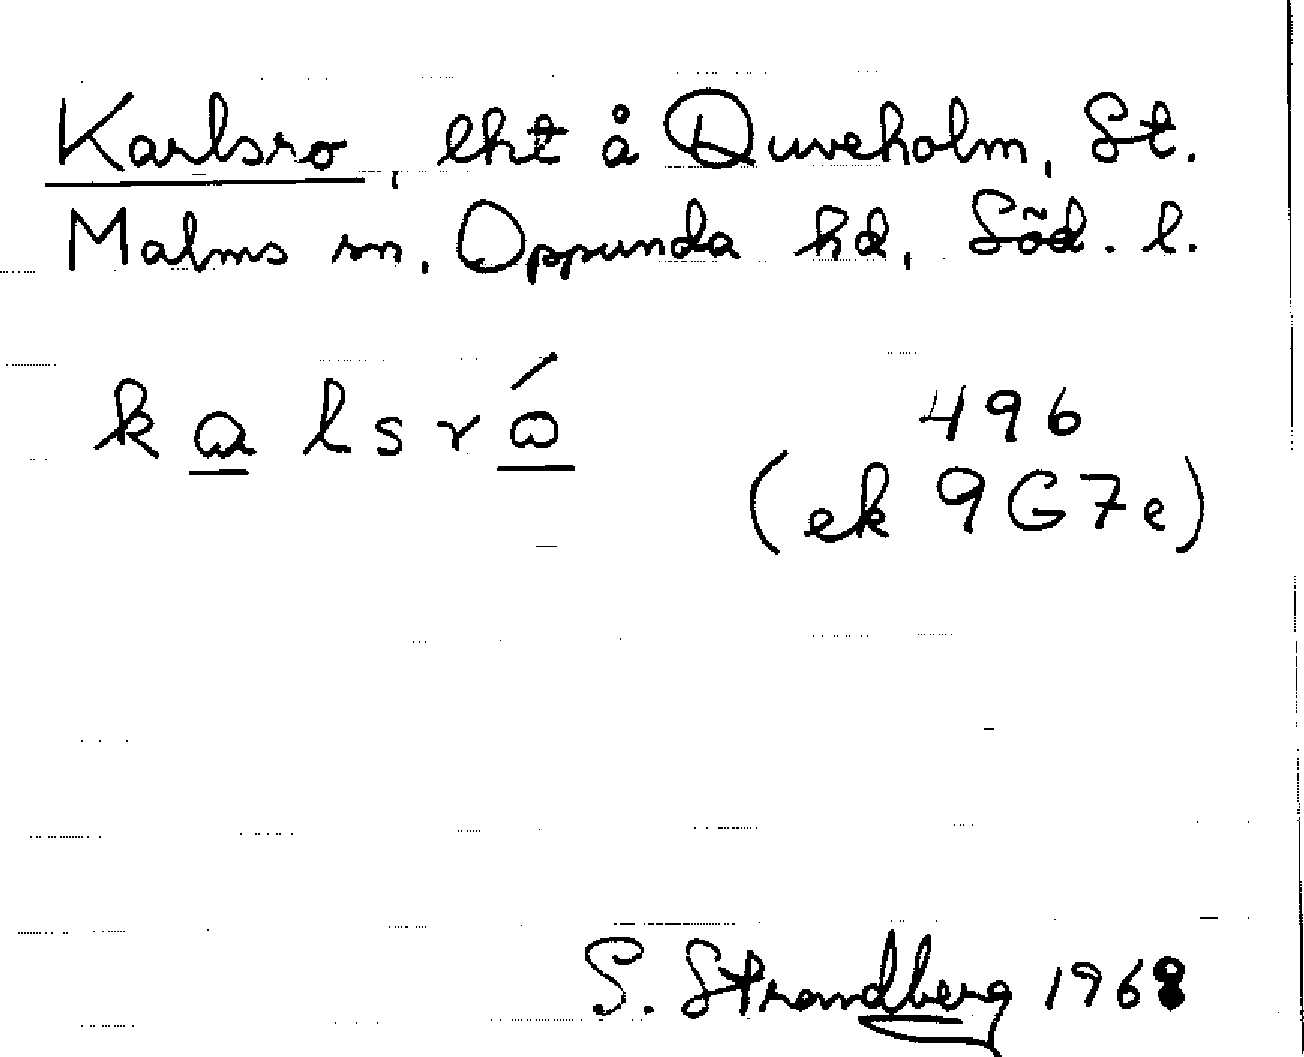 Karlsro, lht å Duveholm, St.
Malms sn, Oppunda hd, Söd. l.
kalsró
496
(ek 9G7e)
S. Strandberg 1968